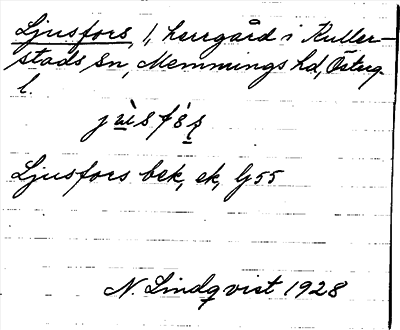 Ljusfors 1, herrgård i Kuller-
stads sn, Memmings hd, Österg.
l.
Ljusfors bek, ek, Gj 55
N. Lindqvist 1928